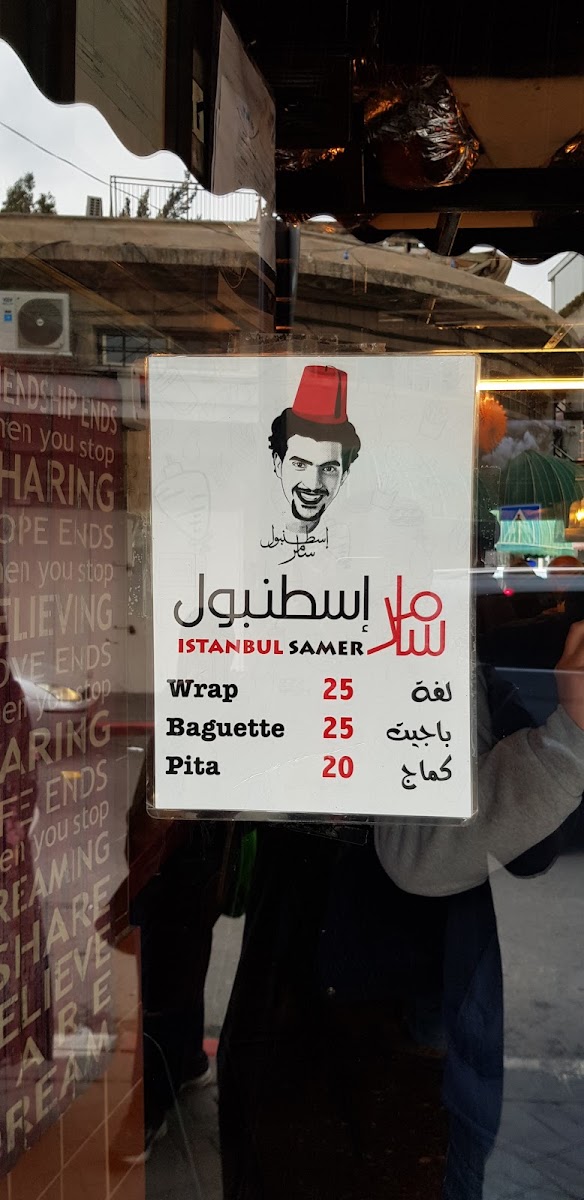 إسطنبول
سامر
إسطنبول سامر
ISTANBUL SAMER
Wrap 25 لفة
Baguette 25 باجيت
Pita 20 كماج
ENDSHIP ENDS
hen you stop
HARING
OPE ENDS
hen you stop
ELIEVING
OVE ENDS
en you stop
ARING
FE ENDS
en you stop
REAMING
SHARE
ELIEVE
ARE
DREAM